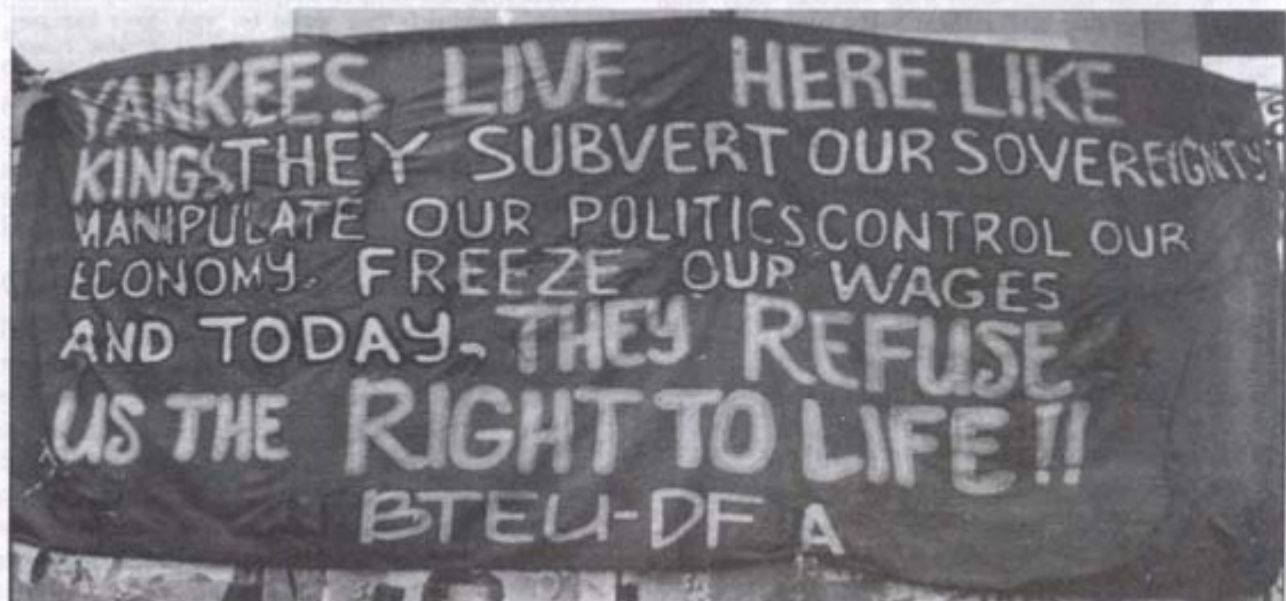 YANKEES LIVE HERE LIKE
KINGS THEY SUBVERT OUR SOVEREIGNTY
MANIPULATE OUR POLITICS. CONTROL OUR
ECONOMY. FREEZE OUR WAGES
AND TODAY, THEY REFUSE
US THE RIGHT TO LIFE!!
BTEU-DF A